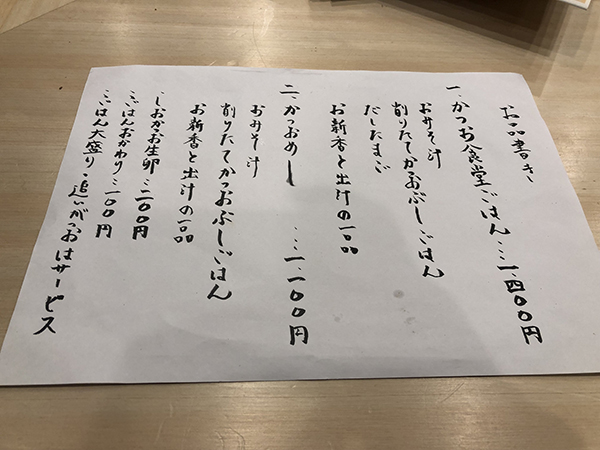 お品書き
一、かつお食堂ごはん…一、四〇〇円
おみそ汁
削りたてかつおぶしごはん
だしたまご
お新香と出汁の一品
二、かつおめし…一、一〇〇円
おみそ汁
削りたてかつおぶしごはん
お新香と出汁の一品
・しおかつお生卵…二〇〇円
・ごはんおかわり…一〇〇円
・ごはん大盛り・追いがつおはサービス